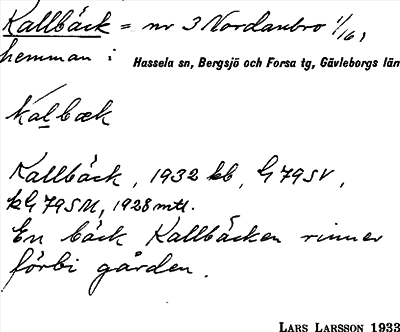 Kallbäck = nr 3 Nordanbro 1/16,
hemman i Hassela sn, Bergsjö och Forsa tg, Gävleborgs län
kálbæk
Kallbäck, 1932 kb, G 79 SV,
kG 79 SU, 1928 mtl.
En bäck Kallbäcken rinner
förbi gården.
LARS LARSSON 1933